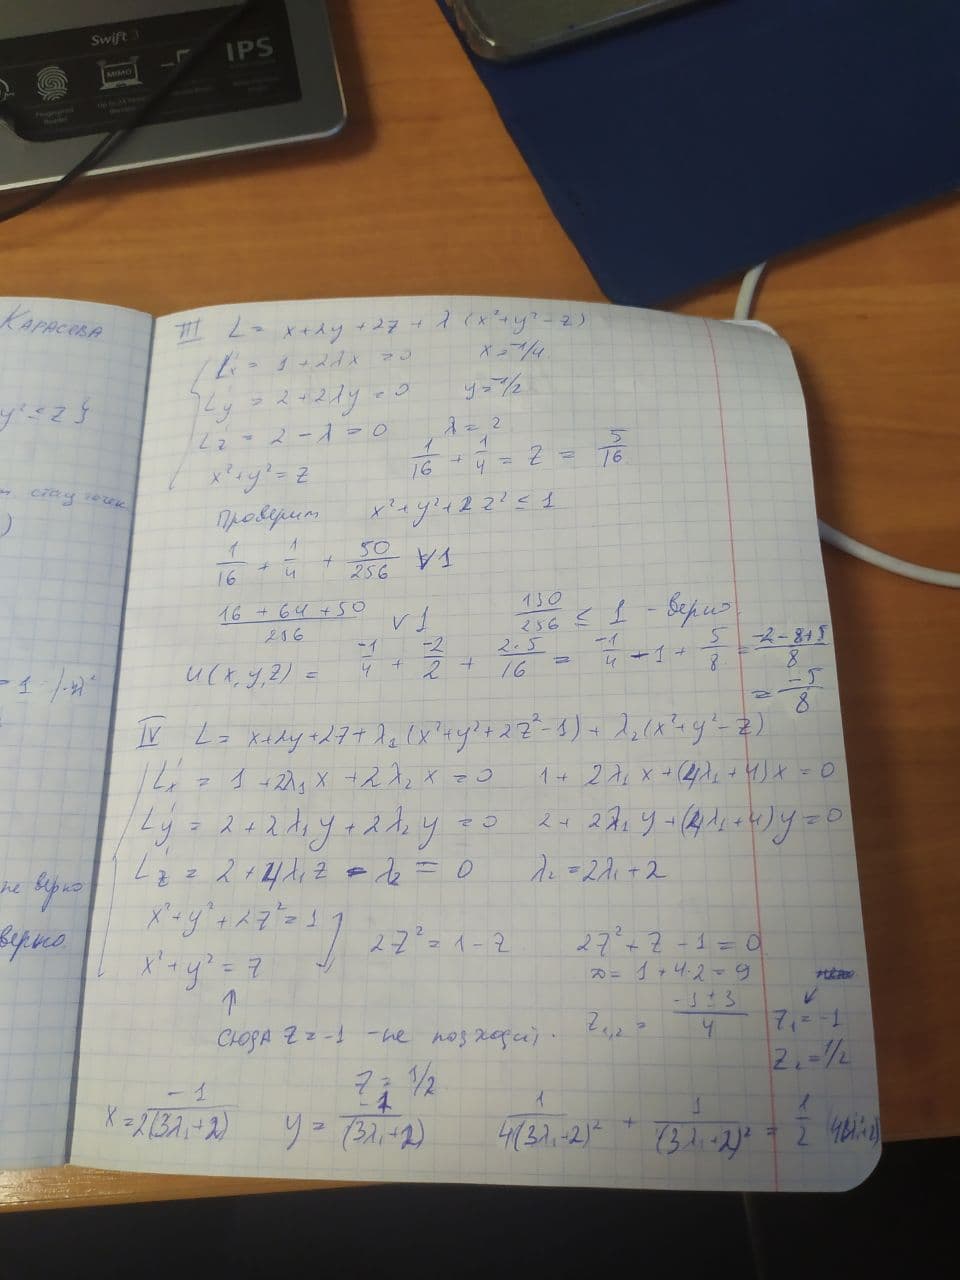 Swift 3
IPS
MIMO
Fingerprint Reader
КАРАСЕВА
y² ≤ z }
стац точек
)
= 1
не верно
верно.
III L = x+2y+2z + λ (x²+y²-z)
L'x = 1+2λx = 0 x = -1/4
L'y = 2+2λy = 0 y = -1/2
L'z = 2 - λ = 0 λ = 2
x²+y² = z 1/16 + 1/4 = z = 5/16
Проверим x²+y²+2z² ≤ 1
1/16 + 1/4 + 50/256 ∨ 1
(16+64+50)/256 ∨ 1 130/256 ≤ 1 - верно.
u(x,y,z) = -1/4 + -2/2 + 2·5/16 = -1/4 - 1 + 5/8 = (-2-8+5)/8
= -5/8
IV L = x+2y+2z+λ₁(x²+y²+2z²-1)+λ₂(x²+y²-z)
L'x = 1+2λ₁x+2λ₂x = 0 1+2λ₁x+(4λ₁+4)x = 0
L'y = 2+2λ₁y+2λ₂y = 0 2+2λ₁y+(4λ₁+4)y = 0
L'z = 2+4λ₁z-λ₂ = 0 λ₂ = 2λ₁+2
x²+y²+2z² = 1
2z² = 1-z 2z²+z-1 = 0
x²+y² = z
D = 1+4·2 = 9
↑
сюда z = -1 - не подходит. z₁,₂ = (-1±3)/4 z₁ = -1
z₂ = 1/2
z = 1/2
x = -1/(2(3λ₁+2)) y = -1/(3λ₁+2) 1/(4(3λ₁+2)²) + 1/(3λ₁+2)² = 1/2